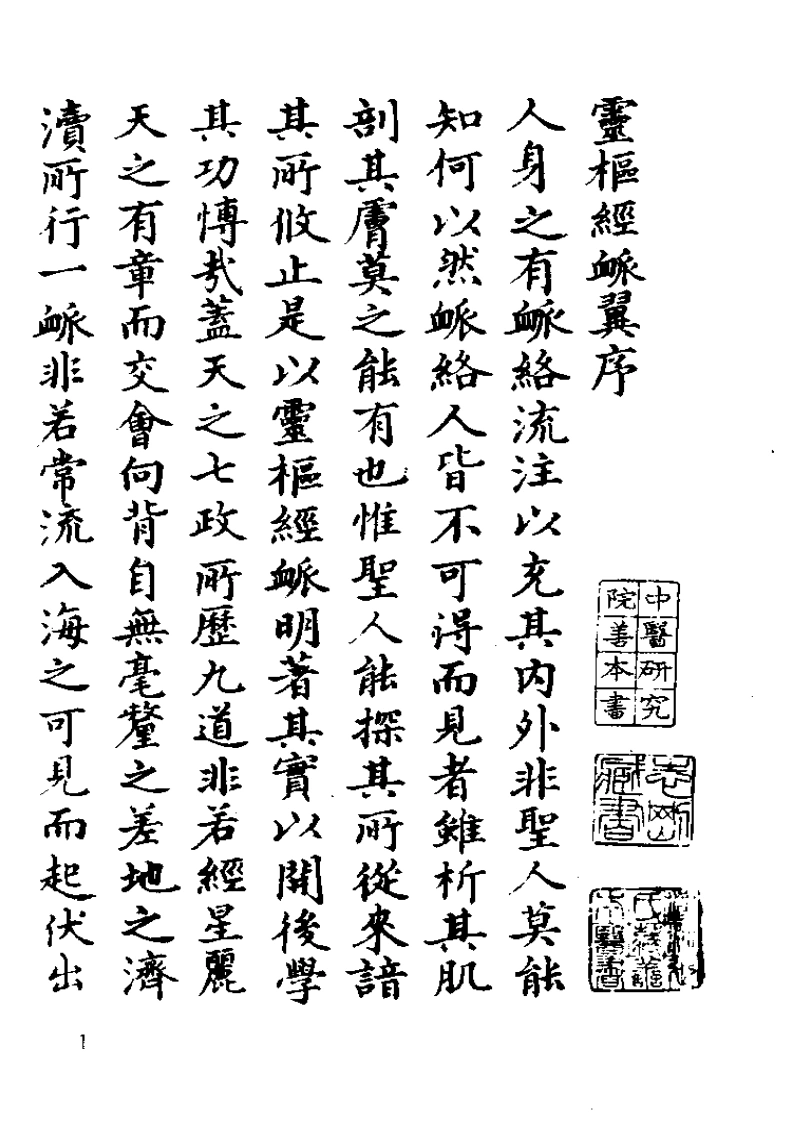 靈樞經脈翼序
人身之有脈絡流注以充其内外非聖人莫能
知何以然脈絡人皆不可得而見者雖析其肌
剖其膚莫之能有也惟聖人能探其所從來諳
其所攸止是以靈樞經脈明著其實以開後學
其功愽㢤蓋天之七政所歷九道非若經星麗
天之有章而交會向背自無毫釐之差地之濟
瀆所行一脈非若常流入海之可見而起伏出
中醫研究
院善本書
藏書
1